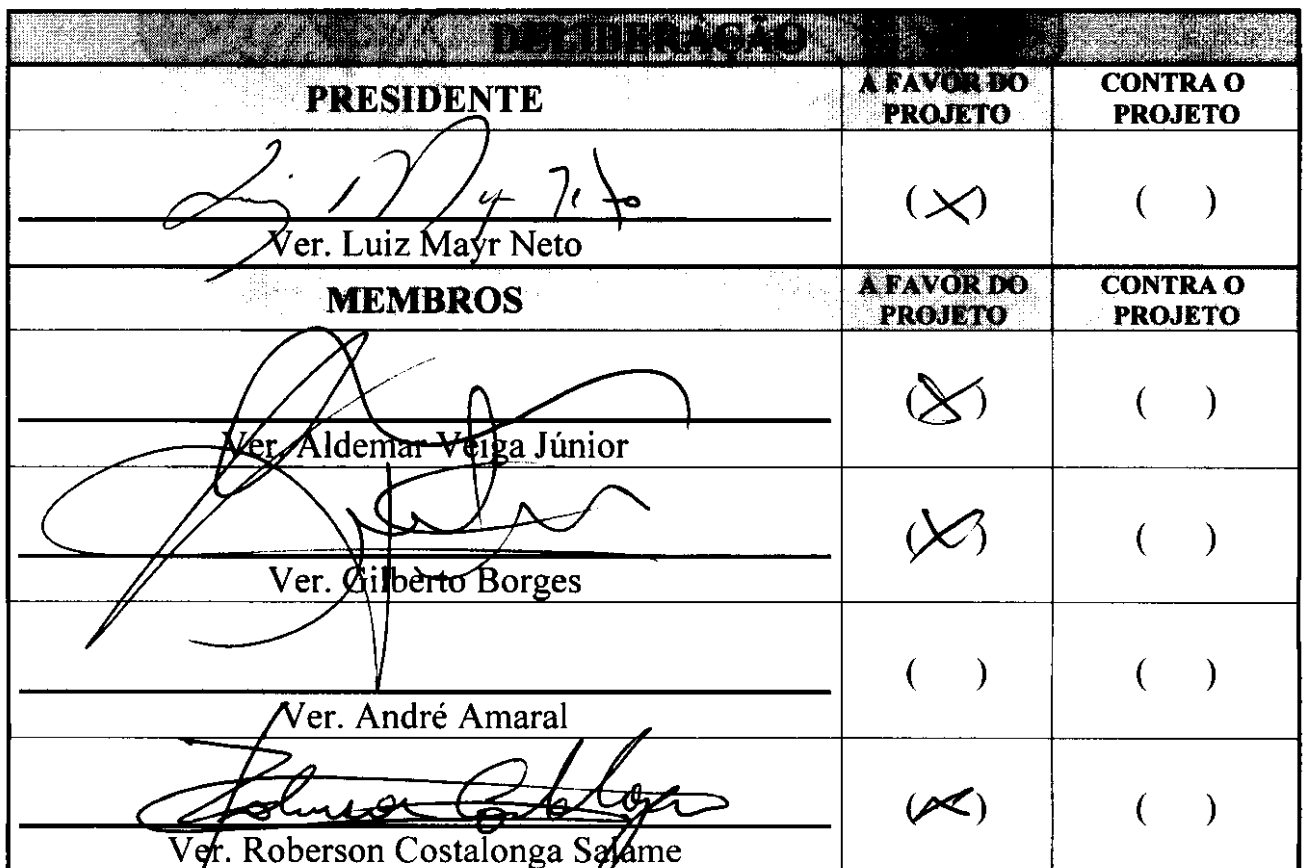 DELIBERAÇÃO
PRESIDENTE
A FAVOR DO
PROJETO
CONTRA O
PROJETO
(X)
( )
Ver. Luiz Mayr Neto
MEMBROS
A FAVOR DO
PROJETO
CONTRA O
PROJETO
(X)
( )
Ver. Aldemar Veiga Júnior
(X)
( )
Ver. Gilberto Borges
( )
( )
Ver. André Amaral
(X)
( )
Ver. Roberson Costalonga Salame